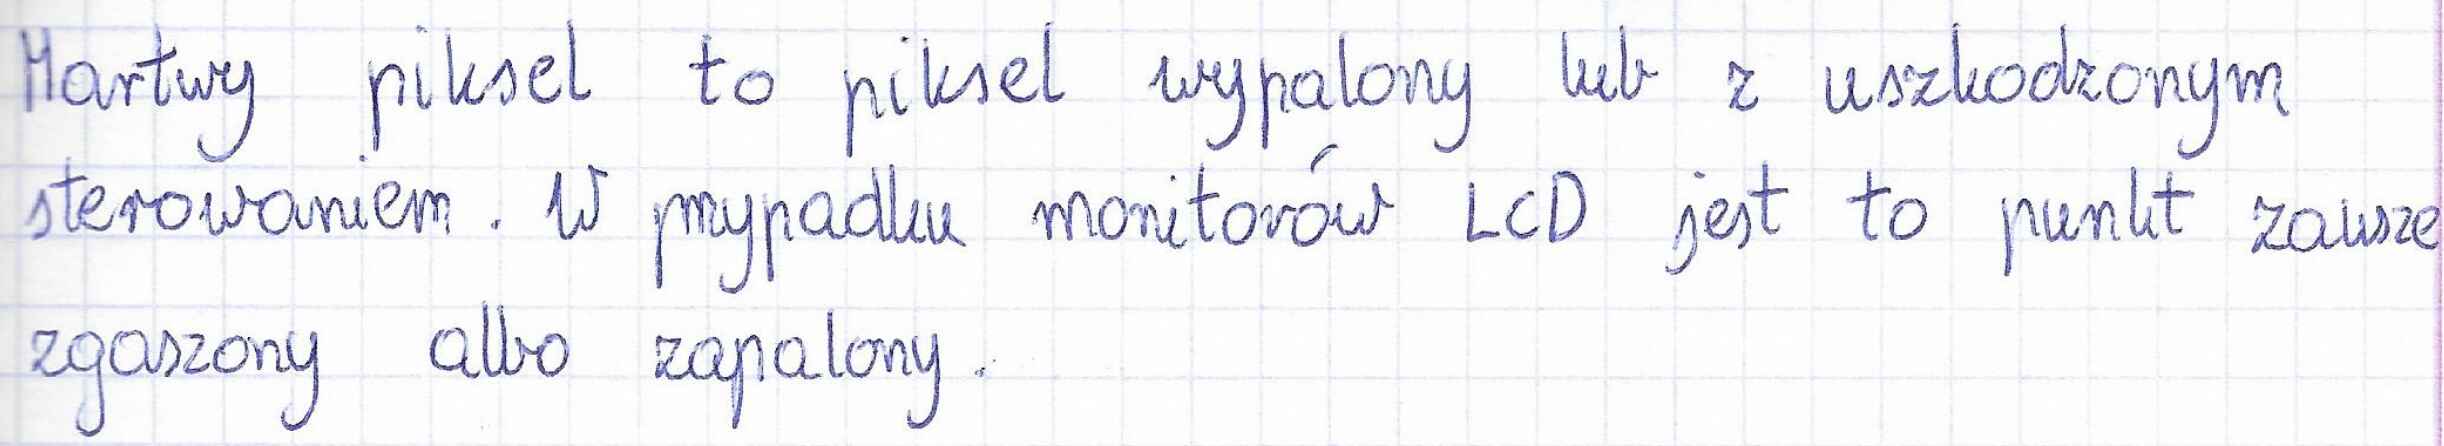 Martwy piksel to piksel wypalony lub z uszkodzonym
sterowaniem. W przypadku monitorów LCD jest to punkt zawsze
zgaszony albo zapalony.